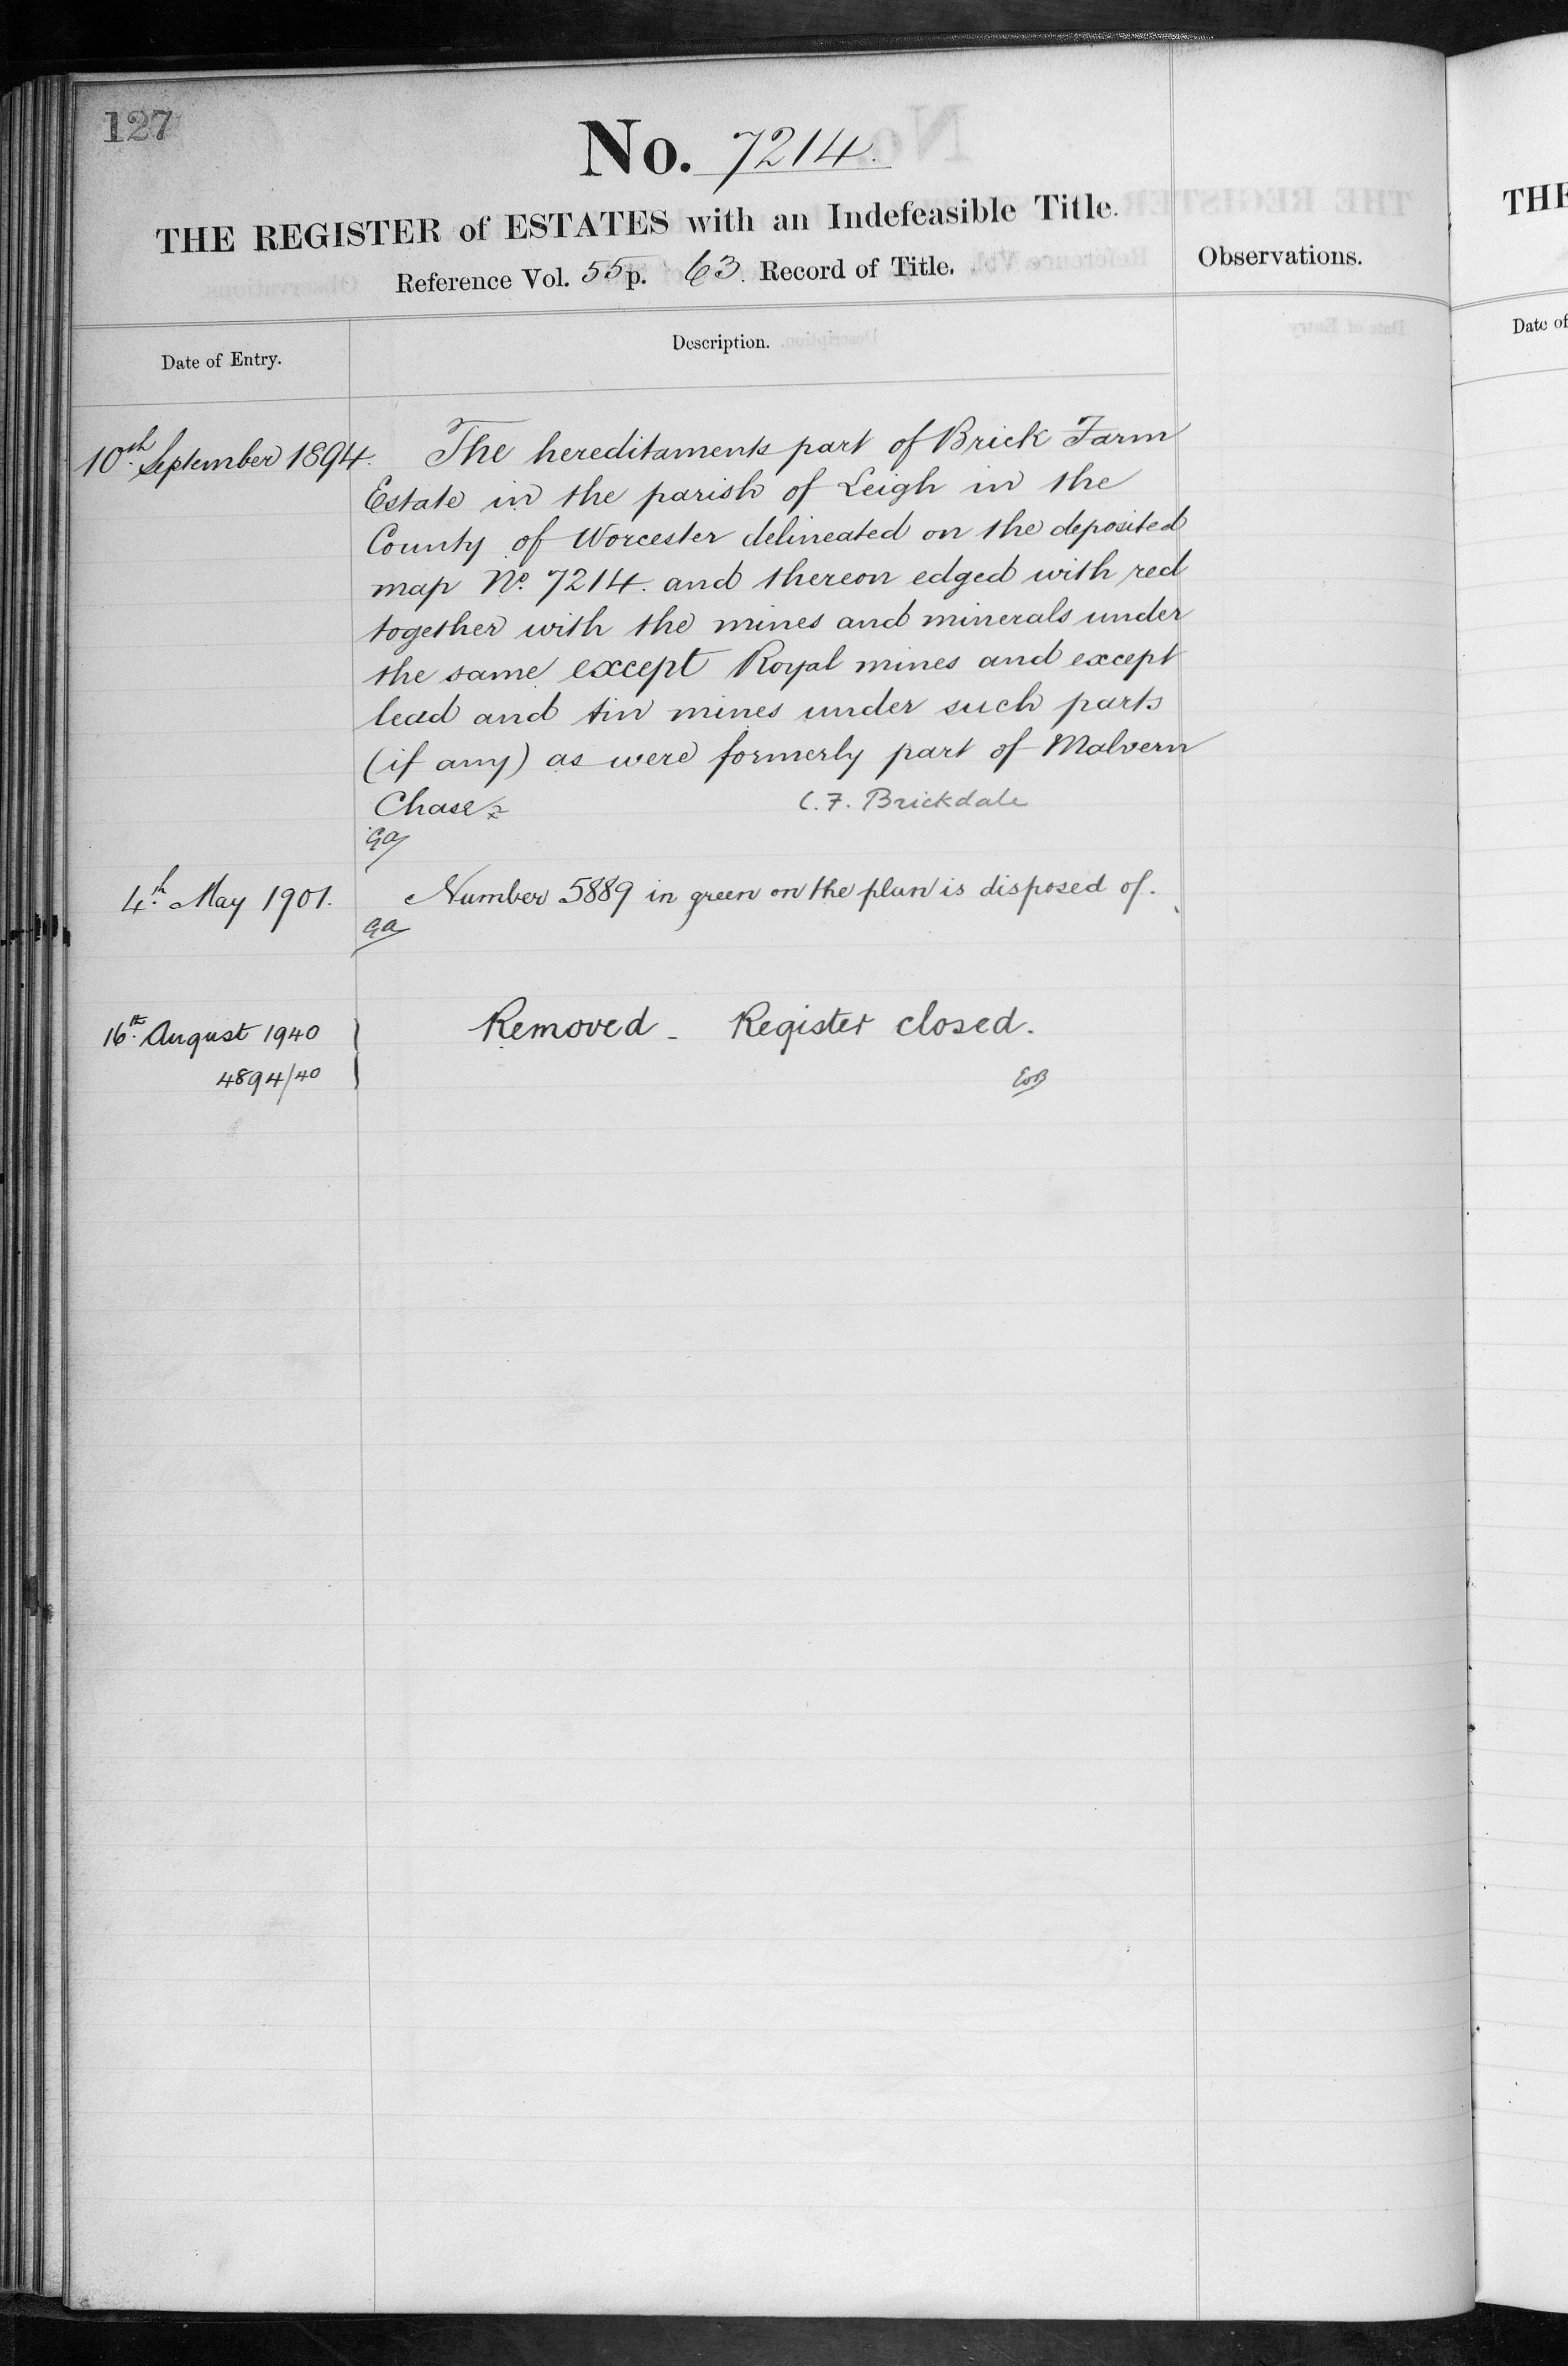 127
No. 7214.
THE REGISTER of ESTATES with an Indefeasible Title.
Reference Vol. 55 p. 63. Record of Title.
Observations.
Date of Entry.
Description.
10th September 1894.
The hereditaments part of Brick Farm
Estate in the parish of Leigh in the
County of Worcester delineated on the deposited
map No. 7214. and thereon edged with red
together with the mines and minerals under
the same except Royal mines and except
lead and tin mines under such parts
(if any) as were formerly part of Malvern
Chase
C. F. Brickdale
4th May 1901.
Number 5889 in green on the plan is disposed of.
16th August 1940
Removed - Register closed.
4894/40
THE
Date of